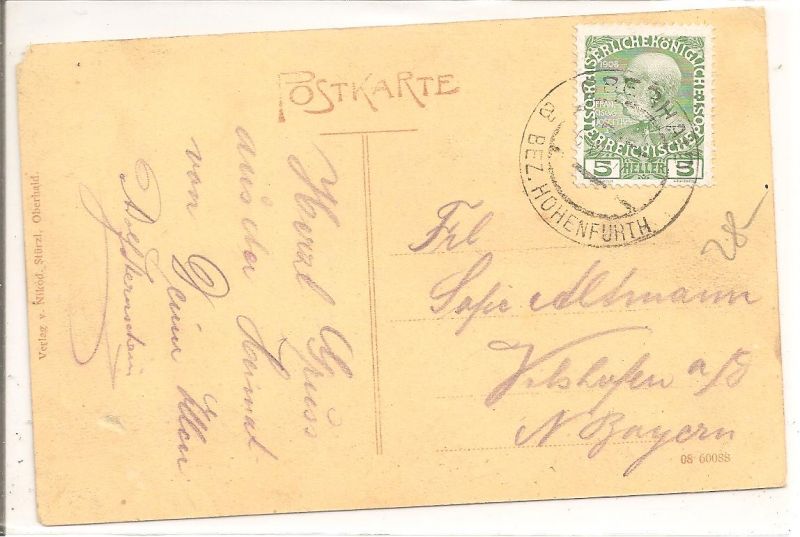 POSTKARTE
KAISERLICHE KÖNIGLICHE
ÖSTERREICHISCHE
1908
FRANZ
5 HELLER 5
BEZ. HOHENFURTH
a
Frl
Sofie Altmann
Vilshofen a/D
N. Bayern
28
08 60088
Herzl Grüss
aus der Heimat
von Deim
Verlag v. Nikod. Stürzl, Oberhaid.